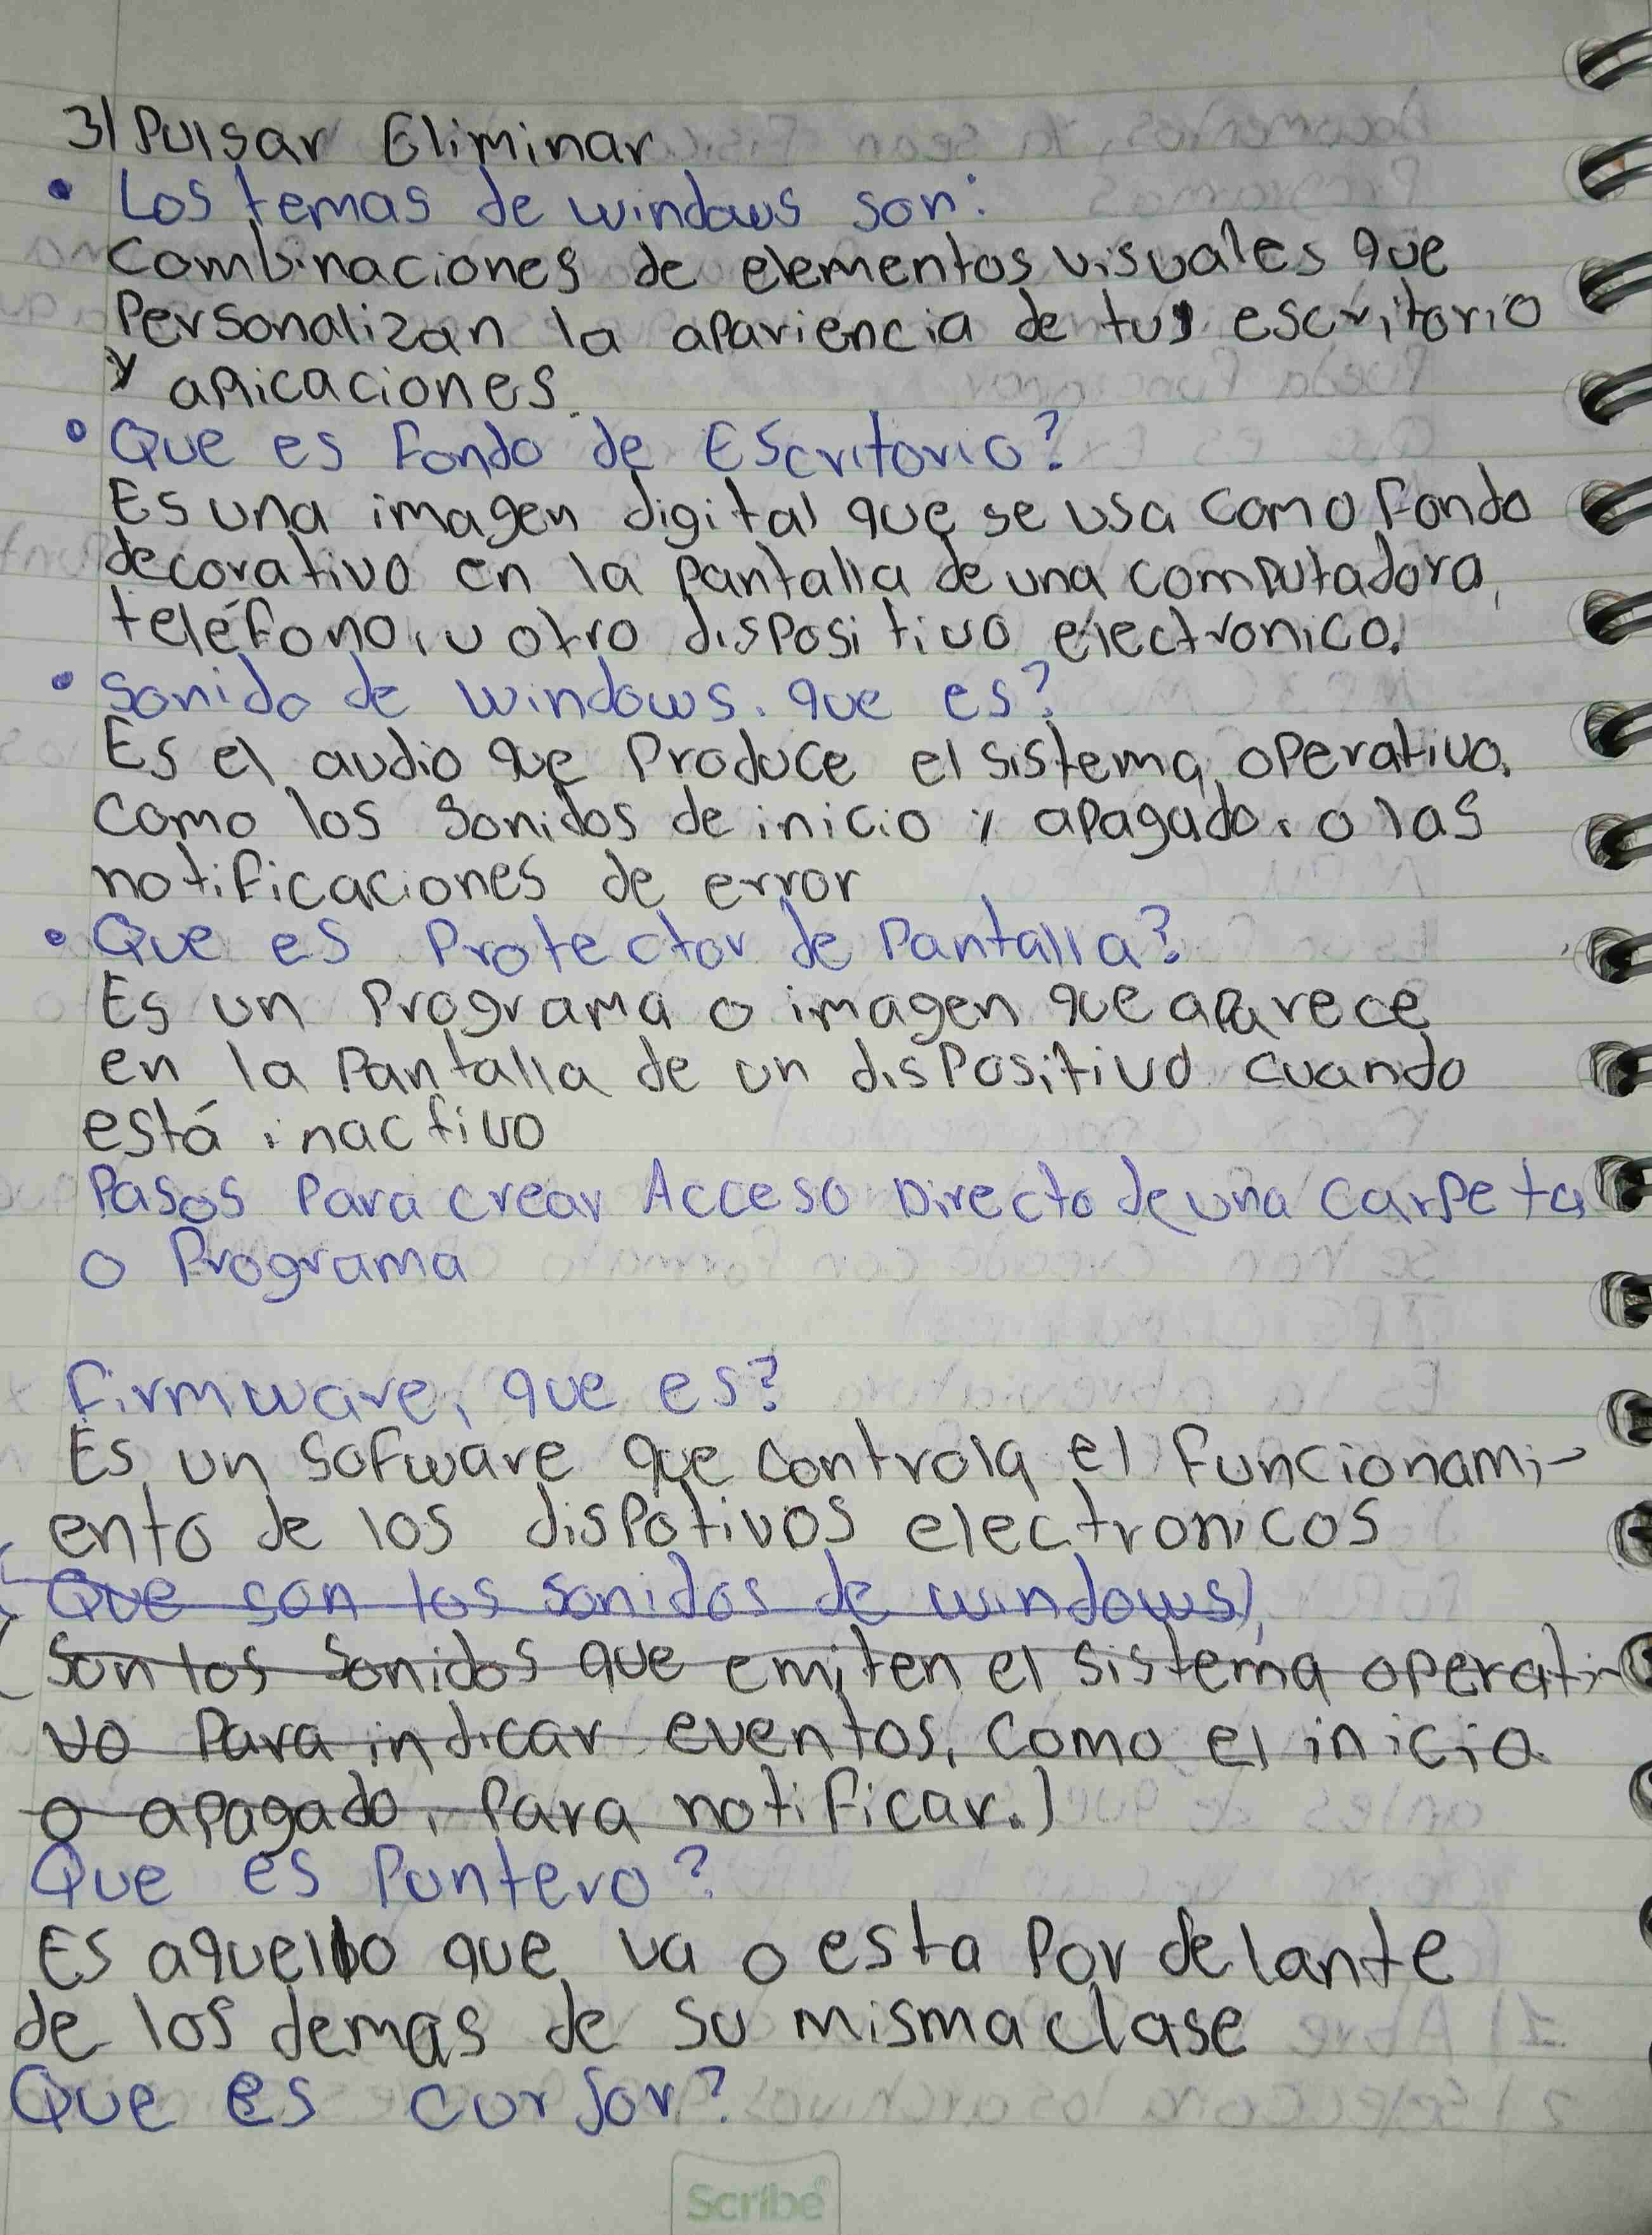 3) Pulsar Eliminar
• Los temas de windows son:
Combinaciones de elementos visuales que
Personalizan la apariencia de tus escritorio
y aplicaciones.
• Que es Fondo de Escritorio?
Es una imagen digital que se usa como fondo
decorativo en la pantalla de una computadora,
teléfono, u otro dispositivo electronico.
• Sonido de windows, que es?
Es el audio que Produce el sistema operativo,
como los sonidos de inicio y apagado, o las
notificaciones de error
• Que es Protector de Pantalla?
Es un Programa o imagen que aparece
en la Pantalla de un dispositivo cuando
está inactivo
Pasos Para crear Acceso Directo de una carpeta
o Programa
Firmware, que es?
Es un Sofware que controla el funcionami-
ento de los dispotivos electronicos
(Que son los sonidos de windows),
(Son los sonidos que emiten el sistema operati-
vo Para indicar eventos, como el inicio
o apagado, Para notificar.)
Que es Puntero?
Es aquello que va o esta Por delante
de los demas de su misma clase
Que es cursor?
Scribe®